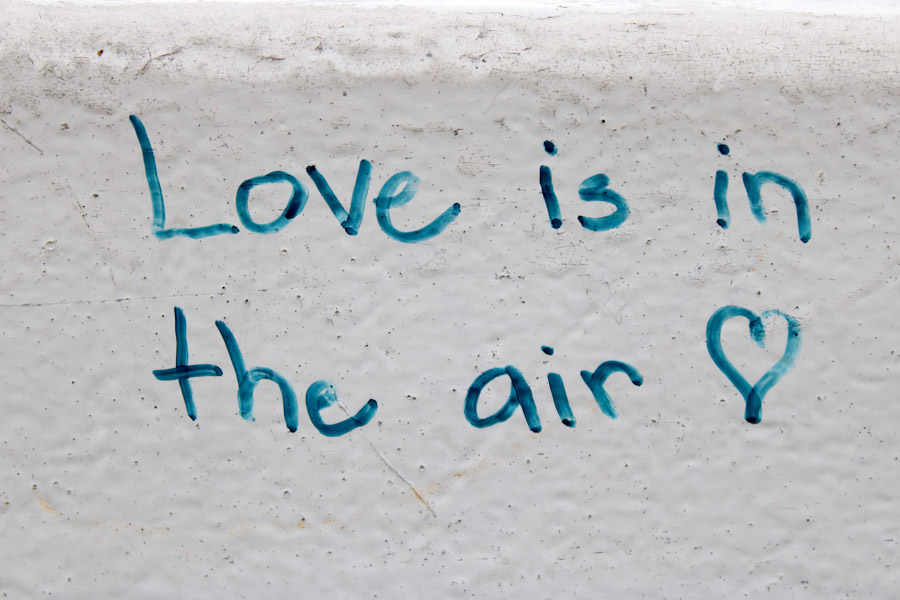 Love is in
the air ♡